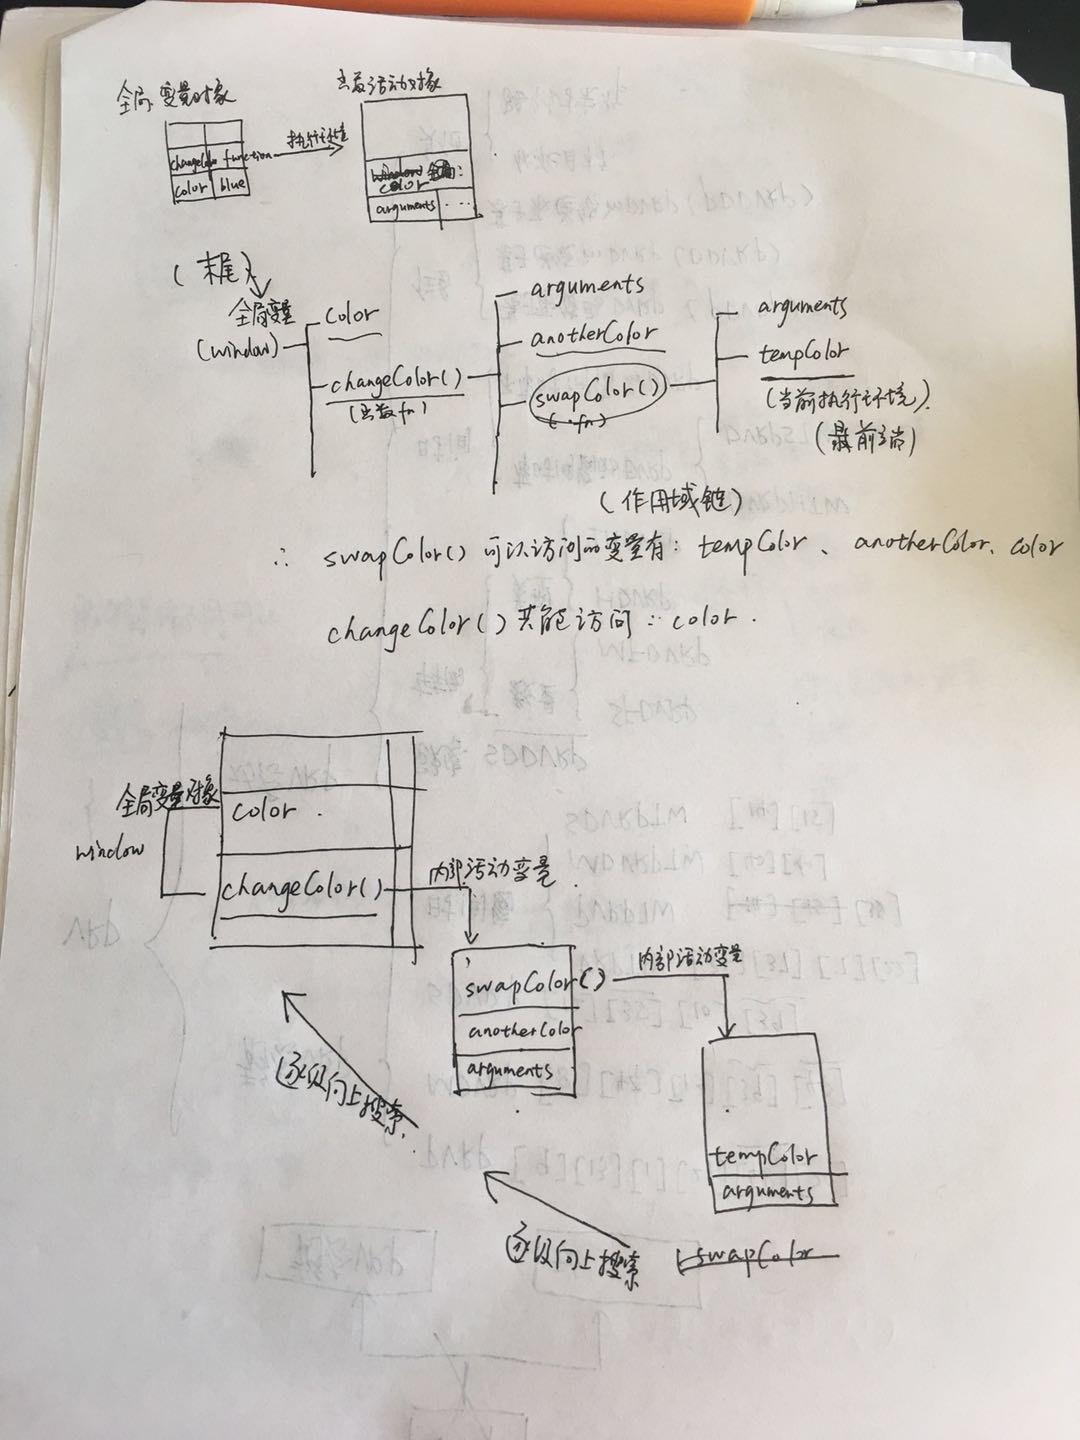 全局变量对象
函数活动对象
changeColor function
执行环境
color blue
color
arguments ...
(末尾)
全局变量
(window)
color
changeColor()
(函数fn)
arguments
anotherColor
swapColor()
arguments
tempColor
(当前执行环境)
(最前端)
(作用域链)
∴ swapColor() 可以访问的变量有: tempColor、anotherColor、color
changeColor() 只能访问: color.
全局变量对象
window
color
changeColor()
内部活动变量
swapColor()
anotherColor
arguments
内部活动变量
tempColor
arguments
逐级向上搜索
逐级向上搜索
swapColor